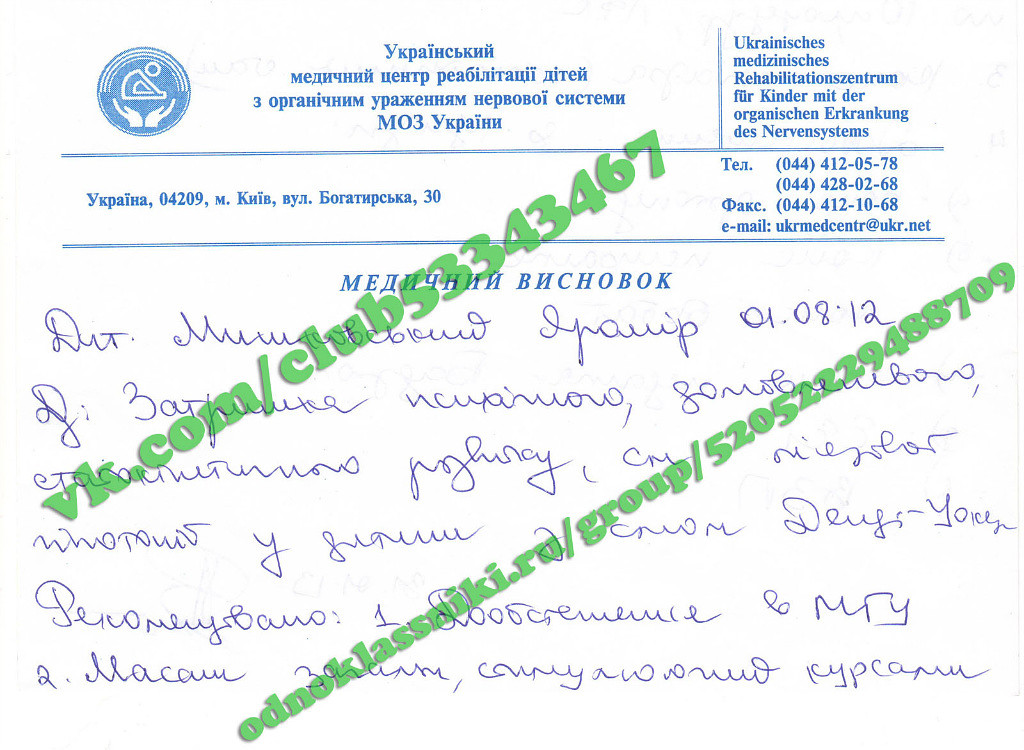 Український
медичний центр реабілітації дітей
з органічним ураженням нервової системи
МОЗ України
Ukrainisches
medizinisches
Rehabilitationszentrum
für Kinder mit der
organischen Erkrankung
des Nervensystems
Україна, 04209, м. Київ, вул. Богатирська, 30
Тел. (044) 412-05-78
(044) 428-02-68
Факс. (044) 412-10-68
e-mail: ukrmedcentr@ukr.net
МЕДИЧНИЙ ВИСНОВОК
Яромір 01.08.12
Дз: Затримка психічного, домовленнєвого,
статокінетичного розвитку,
гіпотонії у дитини з Денді-Уокер
Рекомендовано: 1. Дообстеження в МГЦ
2. Масаж загальн, стимулюючий курсами
vk.com/club53343467
odnoklassniki.ru/group/52052229488709